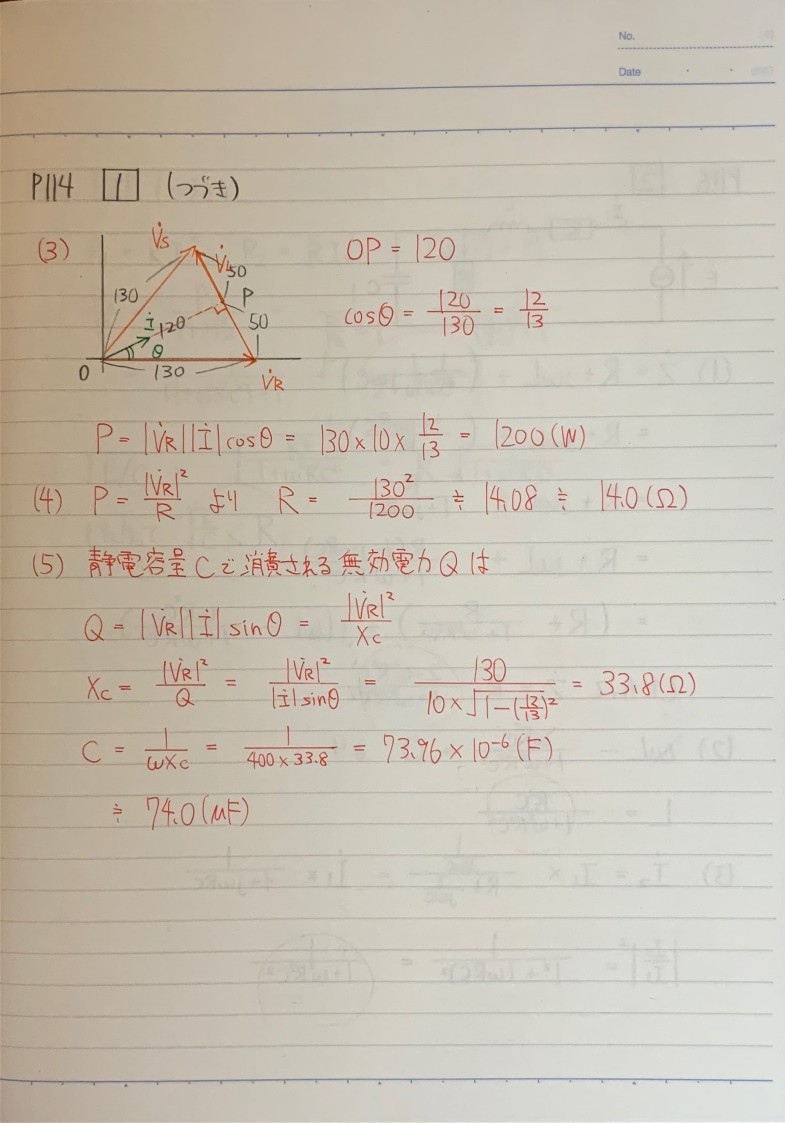 No.
Date
P114 1 (つづき)
(3)
V̇s
V̇L
50
130
P
İ
120
50
θ
0
130
V̇R
OP = 120
cosθ = 120/130 = 12/13
P = |V̇R||İ|cosθ = 130×10×12/13 = 1200(W)
(4) P = |V̇R|²/R より R = 130²/1200 ≒ 14.08 ≒ 14.0(Ω)
(5) 静電容量Cで消費される無効電力Qは
Q = |V̇R||İ|sinθ = |V̇R|²/Xc
Xc = |V̇R|²/Q = |V̇R|²/|İ|sinθ = 130/10×√1-(12/13)² = 33.8(Ω)
C = 1/ωXc = 1/400×33.8 = 73.96×10⁻⁶(F)
≒ 74.0(μF)